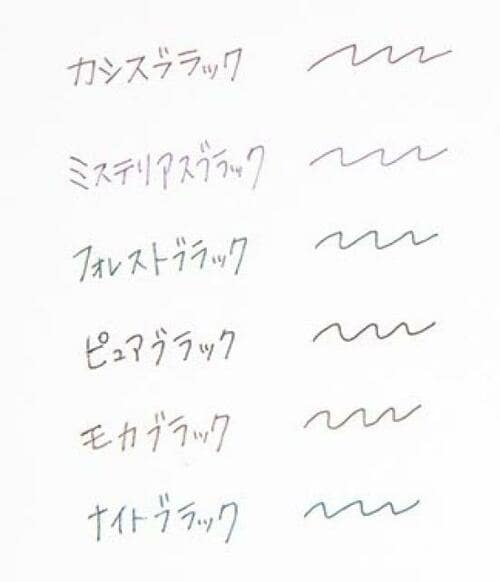 カシスブラック
ミステリアスブラック
フォレストブラック
ピュアブラック
モカブラック
ナイトブラック